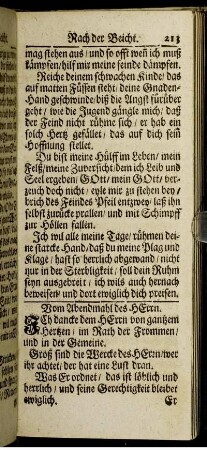 Nach der Beicht. 213
mag stehen aus/ und so offt wen ich muß
kämpfen/ hilf mir meine feinde dämpfen.
Reiche deinem schwachen Kinde/ das
auf matten Füssen steht: deine Gnaden-
Hand geschwinde/ biß die Angst fürüber
geht/ wie die Jugend gängle mich/ daß
der Feind nicht rühme sich/ er hab ein
solch Hertz gefället/ das auf dich sein
Hoffnung stellet.
Du bist meine Hülff im Leben/ mein
Felß/ meine Zuversicht/ dem ich Leib und
Seel ergeben/ GOtt/ mein GOtt/ ver-
zeuch doch nicht/ eyle mir zu stehen bey/
brich des Feindes Pfeil entzwey/ laß ihn
selbst zurücke prallen/ und mit Schimpff
zur Höllen fallen.
Ich wil alle meine Tage/ rühmen dei-
ne starcke Hand/ daß du meine Plag und
Klage/ hast so herrlich abgewand/ nicht
nur in der Sterbligkeit/ soll dein Ruhm
seyn ausgebreit/ ich wils auch hernach
beweisen/ und dort ewiglich dich preisen.
Vom Abendmahl des HErrn.
Ich dancke dem HErrn von gantzem
Hertzen/ im Rath der Frommen/
und in der Gemeine.
Groß sind die Wercke des HErrn/ wer
ihr achtet/ der hat eine Lust dran.
Was Er ordnet/ das ist löblich und
herrlich/ und seine Gerechtigkeit bleibet
ewiglich. Er